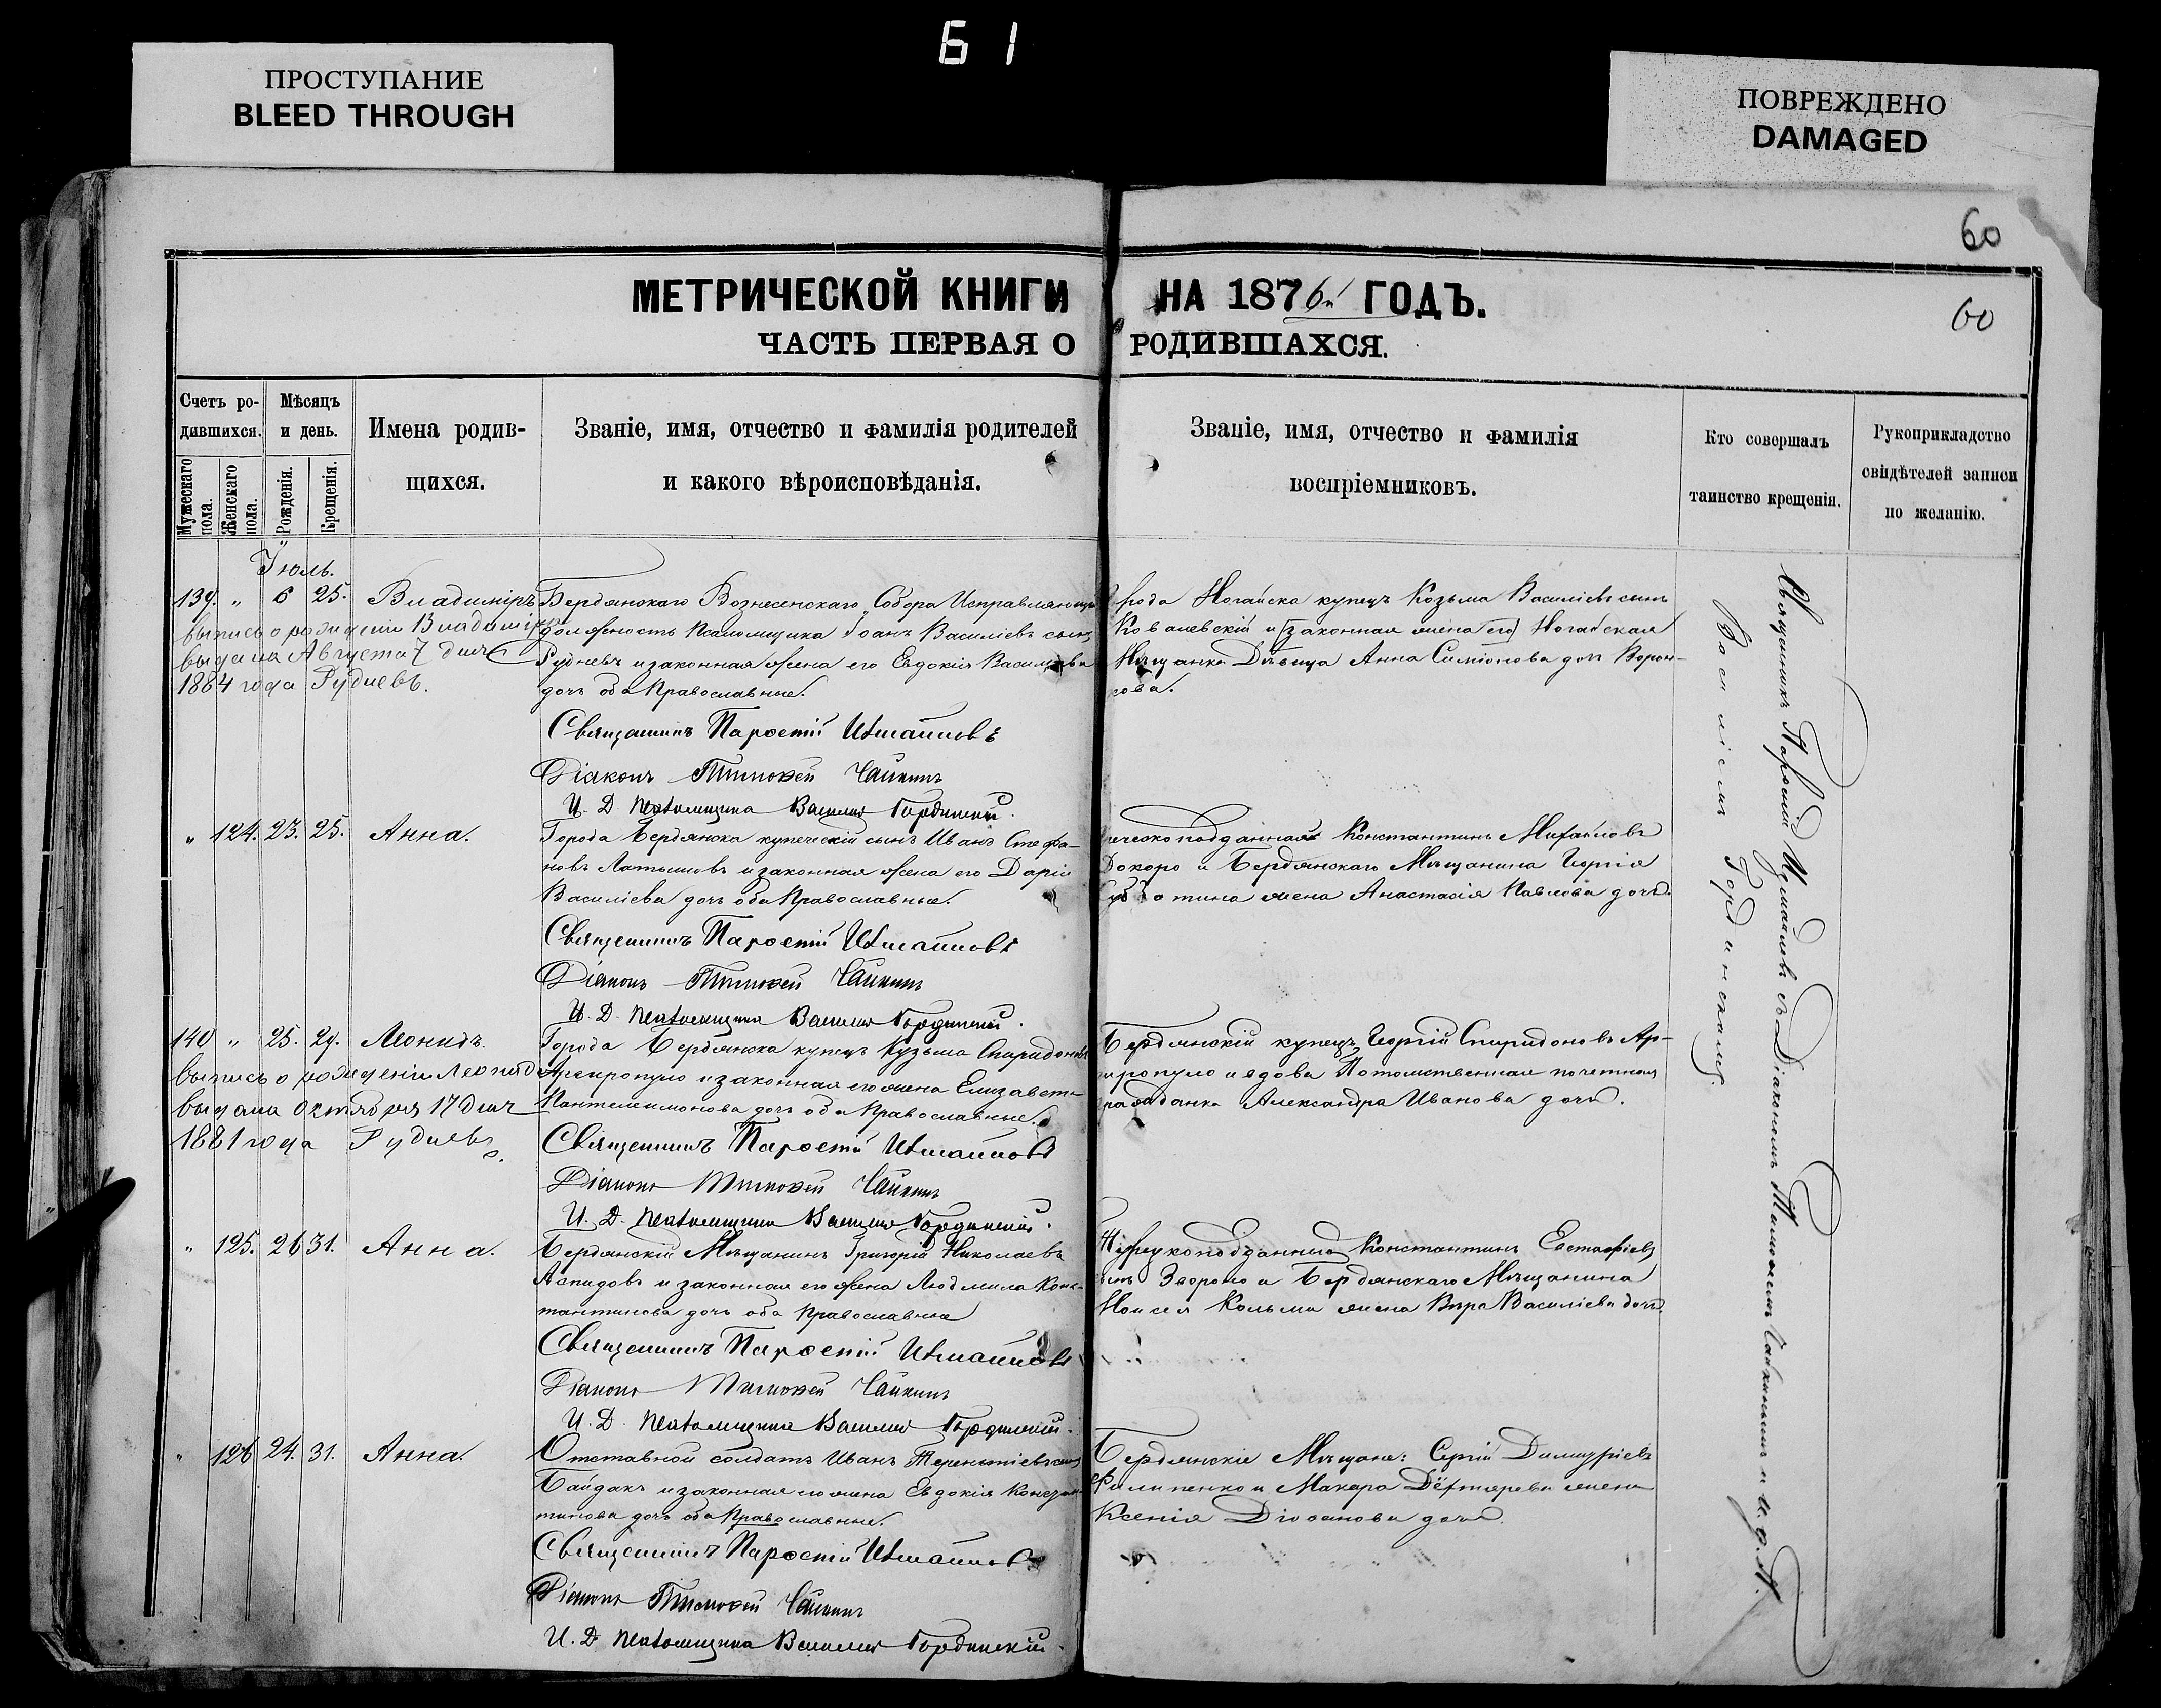 Б 1
ПРОСТУПАНИЕ
BLEED THROUGH
ПОВРЕЖДЕНО
DAMAGED
60
60
МЕТРИЧЕСКОЙ КНИГИ НА 1876й ГОДЪ.
ЧАСТЬ ПЕРВАЯ О РОДИВШАХСЯ.
Счетъ ро-
дившихся.
Мужескаго пола.
Женскаго пола.
Мѣсяцъ
и день.
Рожденія.
Крещенія.
Имена родив-
щихся.
Званіе, имя, отчество и фамилія родителей
и какого вѣроисповѣданія.
Званіе, имя, отчество и фамилія
воспріемниковъ.
Кто совершалъ
таинство крещенія.
Рукоприкладство
свидѣтелей записи
по желанію.
Іюль.
139. " 6 25. Владиміръ
выпись о рожденіи Владиміра
выдана Августа 7 дня
1884 года Рудневъ.
Бердянскаго Вознесенскаго Собора Исправляющ
должность Псаломщика Іоанъ Василіевъ сынъ
Рудневъ и законная жена его Евдокія Василіева
дочь оба Православные.
рода Ногайска купецъ Козьма Василіевъ сынъ
Ковалевскій и (законная жена его) Ногайская
Мѣщанка Дѣвица Анна Симіонова дочь Ворон-
цова.
Священникъ Паросній Измаиловъ
Діаконъ Тимофей Чайкинъ
И. Д. Псаломщика Василій Гординскій.
" 124. 23. 25. Анна.
Города Бердянска купеческій сынъ Иванъ Стефа-
новъ Латышовъ и законная жена его Дарія
Василіева дочь оба Православные.
ческоподданный Константинъ Михайловъ
Докоро и Бердянскаго Мѣщанина Георгія
жена Анастасія Павлова дочь.
Священникъ Паросній Измаиловъ
Діаконъ Тимофей Чайкинъ
И. Д. Псаломщика Василій Гординскій.
140 " 25. 29. Леонидъ.
выпись о рожденіи Леонида
выдана Октября 17 дня
1881 года Рудневъ.
Города Бердянска купецъ Кузьма Спиридоновъ
Аргиропуло и законная его жена Елизавета
Пантелеимонова дочь оба Православные.
Бердянскій купецъ Георгій Спиридоновъ Ар-
гиропуло и вдова Потомственная почетная
гражданка Александра Иванова дочь.
Священникъ Паросній Измаиловъ
Діаконъ Тимофей Чайкинъ
И. Д. Псаломщика Василій Гординскій.
" 125. 26 31. Анна.
Бердянскій Мѣщанинъ Григорій Николаевъ
Аспидовъ и законная его жена Людмила Конс-
тантинова дочь оба Православные
Турецкоподданный Константинъ Евстафіевъ
сынъ Зворопо и Бердянскаго Мѣщанина
Моисея Кальми жена Вѣра Василіева дочь.
Священникъ Паросній Измаиловъ
Діаконъ Тимофей Чайкинъ
И. Д. Псаломщика Василій Гординскій.
" 126 24. 31. Анна.
Отставной солдатъ Иванъ Терентіевъ сынъ
Байдакъ и законная его жена Евдокія Констан-
тинова дочь оба Православные.
Бердянскіе Мѣщане: Сергій Димитріевъ
Филипенко и Макара Дехтярева жена
Ксенія дочь.
Священникъ Паросній Измаиловъ
Діаконъ Тимофей Чайкинъ
И. Д. Псаломщика Василій Гординскій.
Священникъ Паросній Измаиловъ съ Діакономъ Тимофеемъ Чайкинымъ и и. д. п.
Василіемъ Гординскимъ.